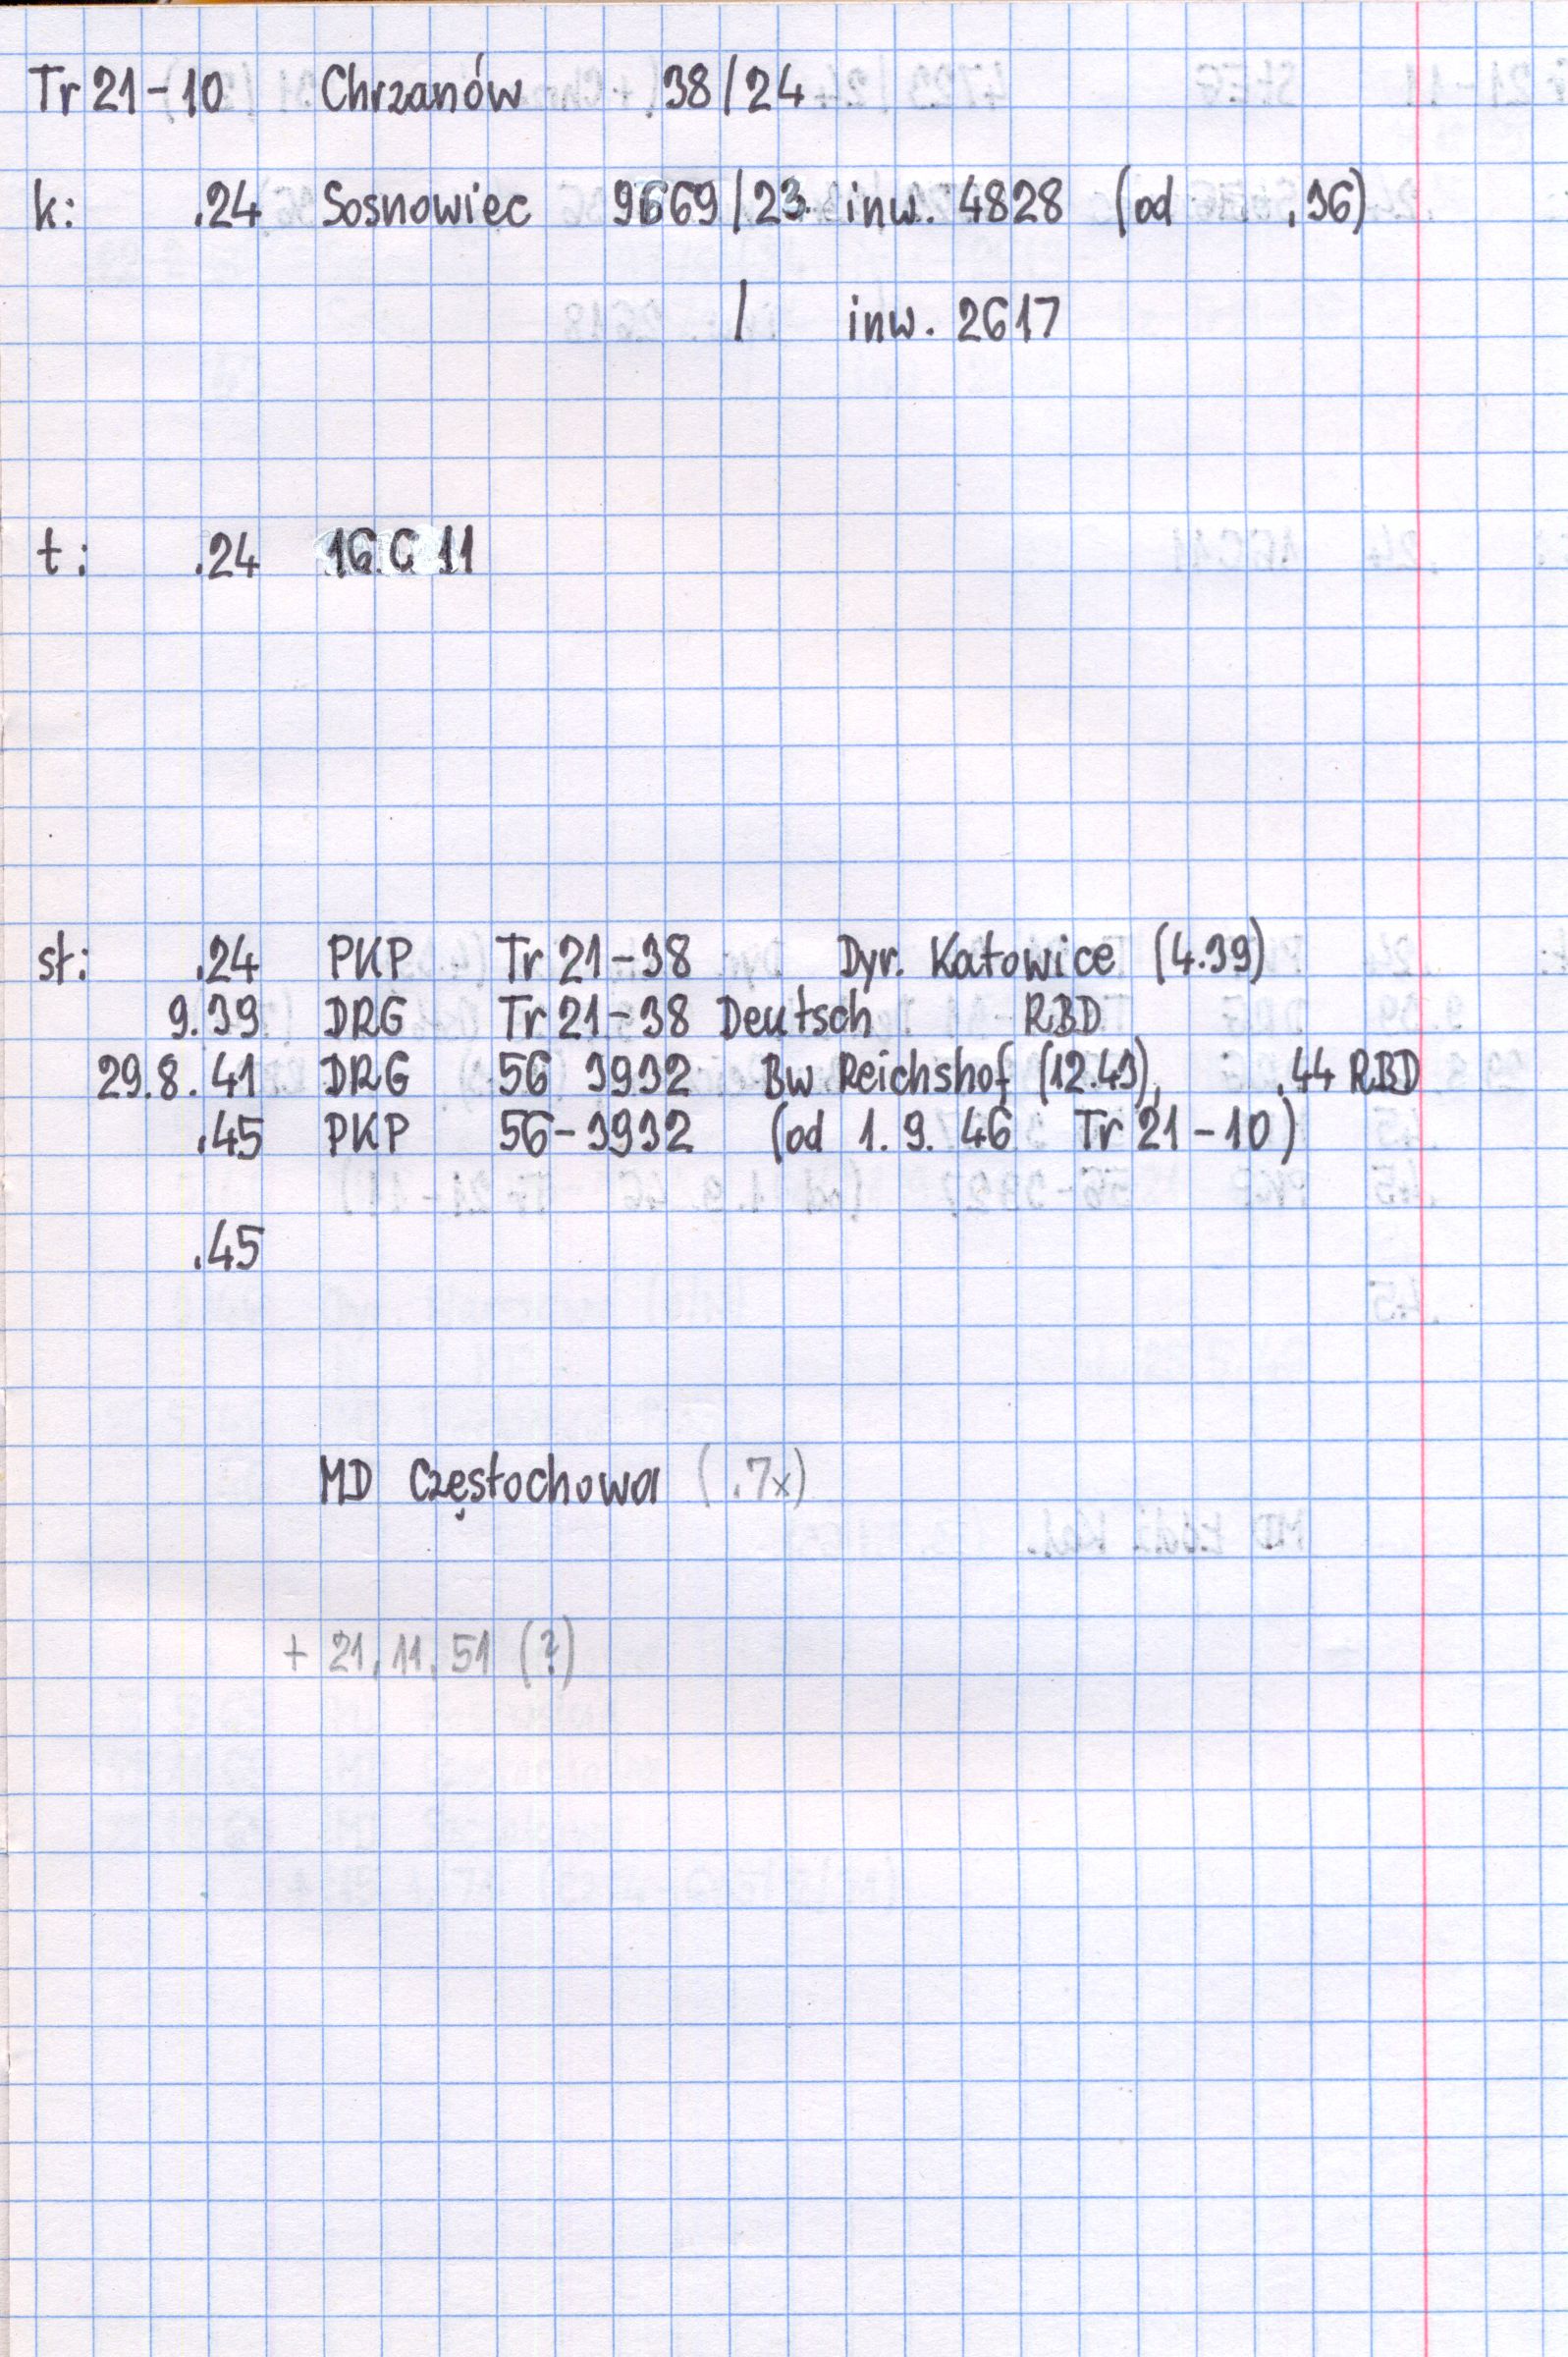 Tr 21-10 Chrzanów 38/24
k: .24 Sosnowiec 9669/23 inw. 4828 (od .36)
/ inw. 2617
t: .24 16 C 11
sł: .24 PKP Tr 21-38 Dyr. Katowice (4.39)
9.39 DRG Tr 21-38 Deutsch RBD
29.8.41 DRG 56 3932 Bw Reichshof (12.43), .44 RBD
.45 PKP 56-3932 (od 1.9.46 Tr 21-10)
.45
MD Częstochowa ( .7x)
+ 21.11.51 (?)